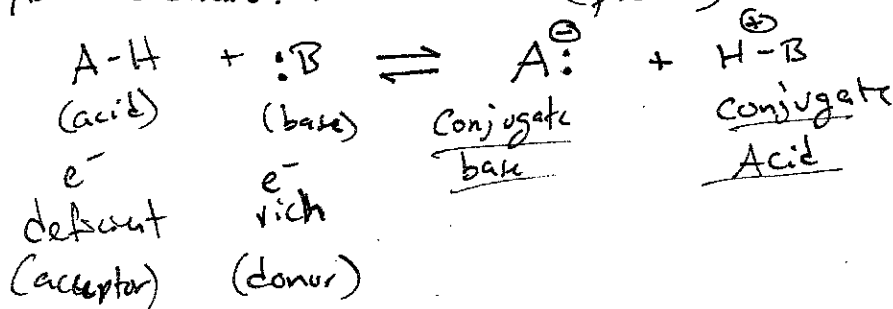 A-H + :B ⇌ A:⊖ + H-B⊕
(acid) (base) Conjugate base Conjugate Acid
e⁻ e⁻
deficient rich
(acceptor) (donor)